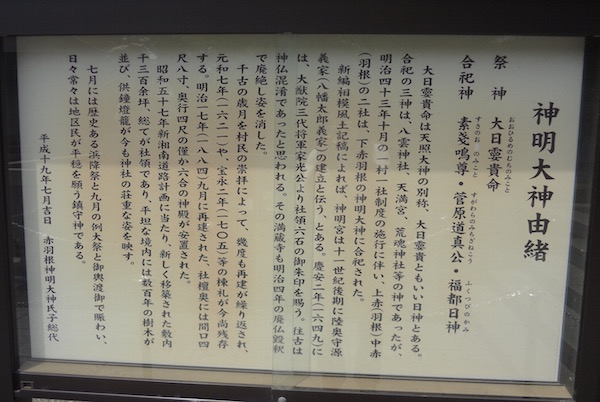 神明大神由緒
祭神 大日孁貴命
おおひるめのむちのみこと
合祀神 素戔嗚尊・菅原道真公・福都日神
すさのおのみこと すがわらのみちざねこう ふくつひのかみ
大日孁貴命は天照大神の別称、大日孁貴ともいい日神とある。
合祀の三神は、八雲神社、天満宮、荒魂神社等の神であったが、
明治四十三年十月の一村一社制度の施行に伴い、上赤(羽根)中赤
(羽根)の二社は、下赤羽根の神明大神に合祀された。
新編相模風土記稿によれば、神明宮は十一世紀後期に陸奥守源
義家(八幡太郎義家)の建立と伝う、とある。慶安二年(一六四九)に
は、大猷院三代将軍家光公より社領六石の御朱印を賜う。往古は
神仏混淆であったと思われる。その満蔵寺も明治四年の廃仏毀釈
で廃絶し姿を消した。
千古の歳月を村民の崇拝によって、幾度も再建が繰り返され、
元和七年(一六二一)や、宝永二年(一七〇五)等の棟札が今尚残存
する。明治一七年(一八八四)九月に再建された、社檀奥には間口四
尺八寸、奥行四尺の僅か六合の神殿が安置された。
昭和五十七年新湘南道路計画に当たり、新しく移築された敷内
千三百余坪、総てが社領であり、平坦な境内には数百年の樹木が
並び、供鐘燈籠が今も神社の荘重な姿を映す。
七月には歴史ある浜降祭と九月の例大祭と御輿渡御で賑わい、
日々常々は地区民が平穏を願う鎮守神である。
平成十九年七月吉日 赤羽根神明大神氏子総代